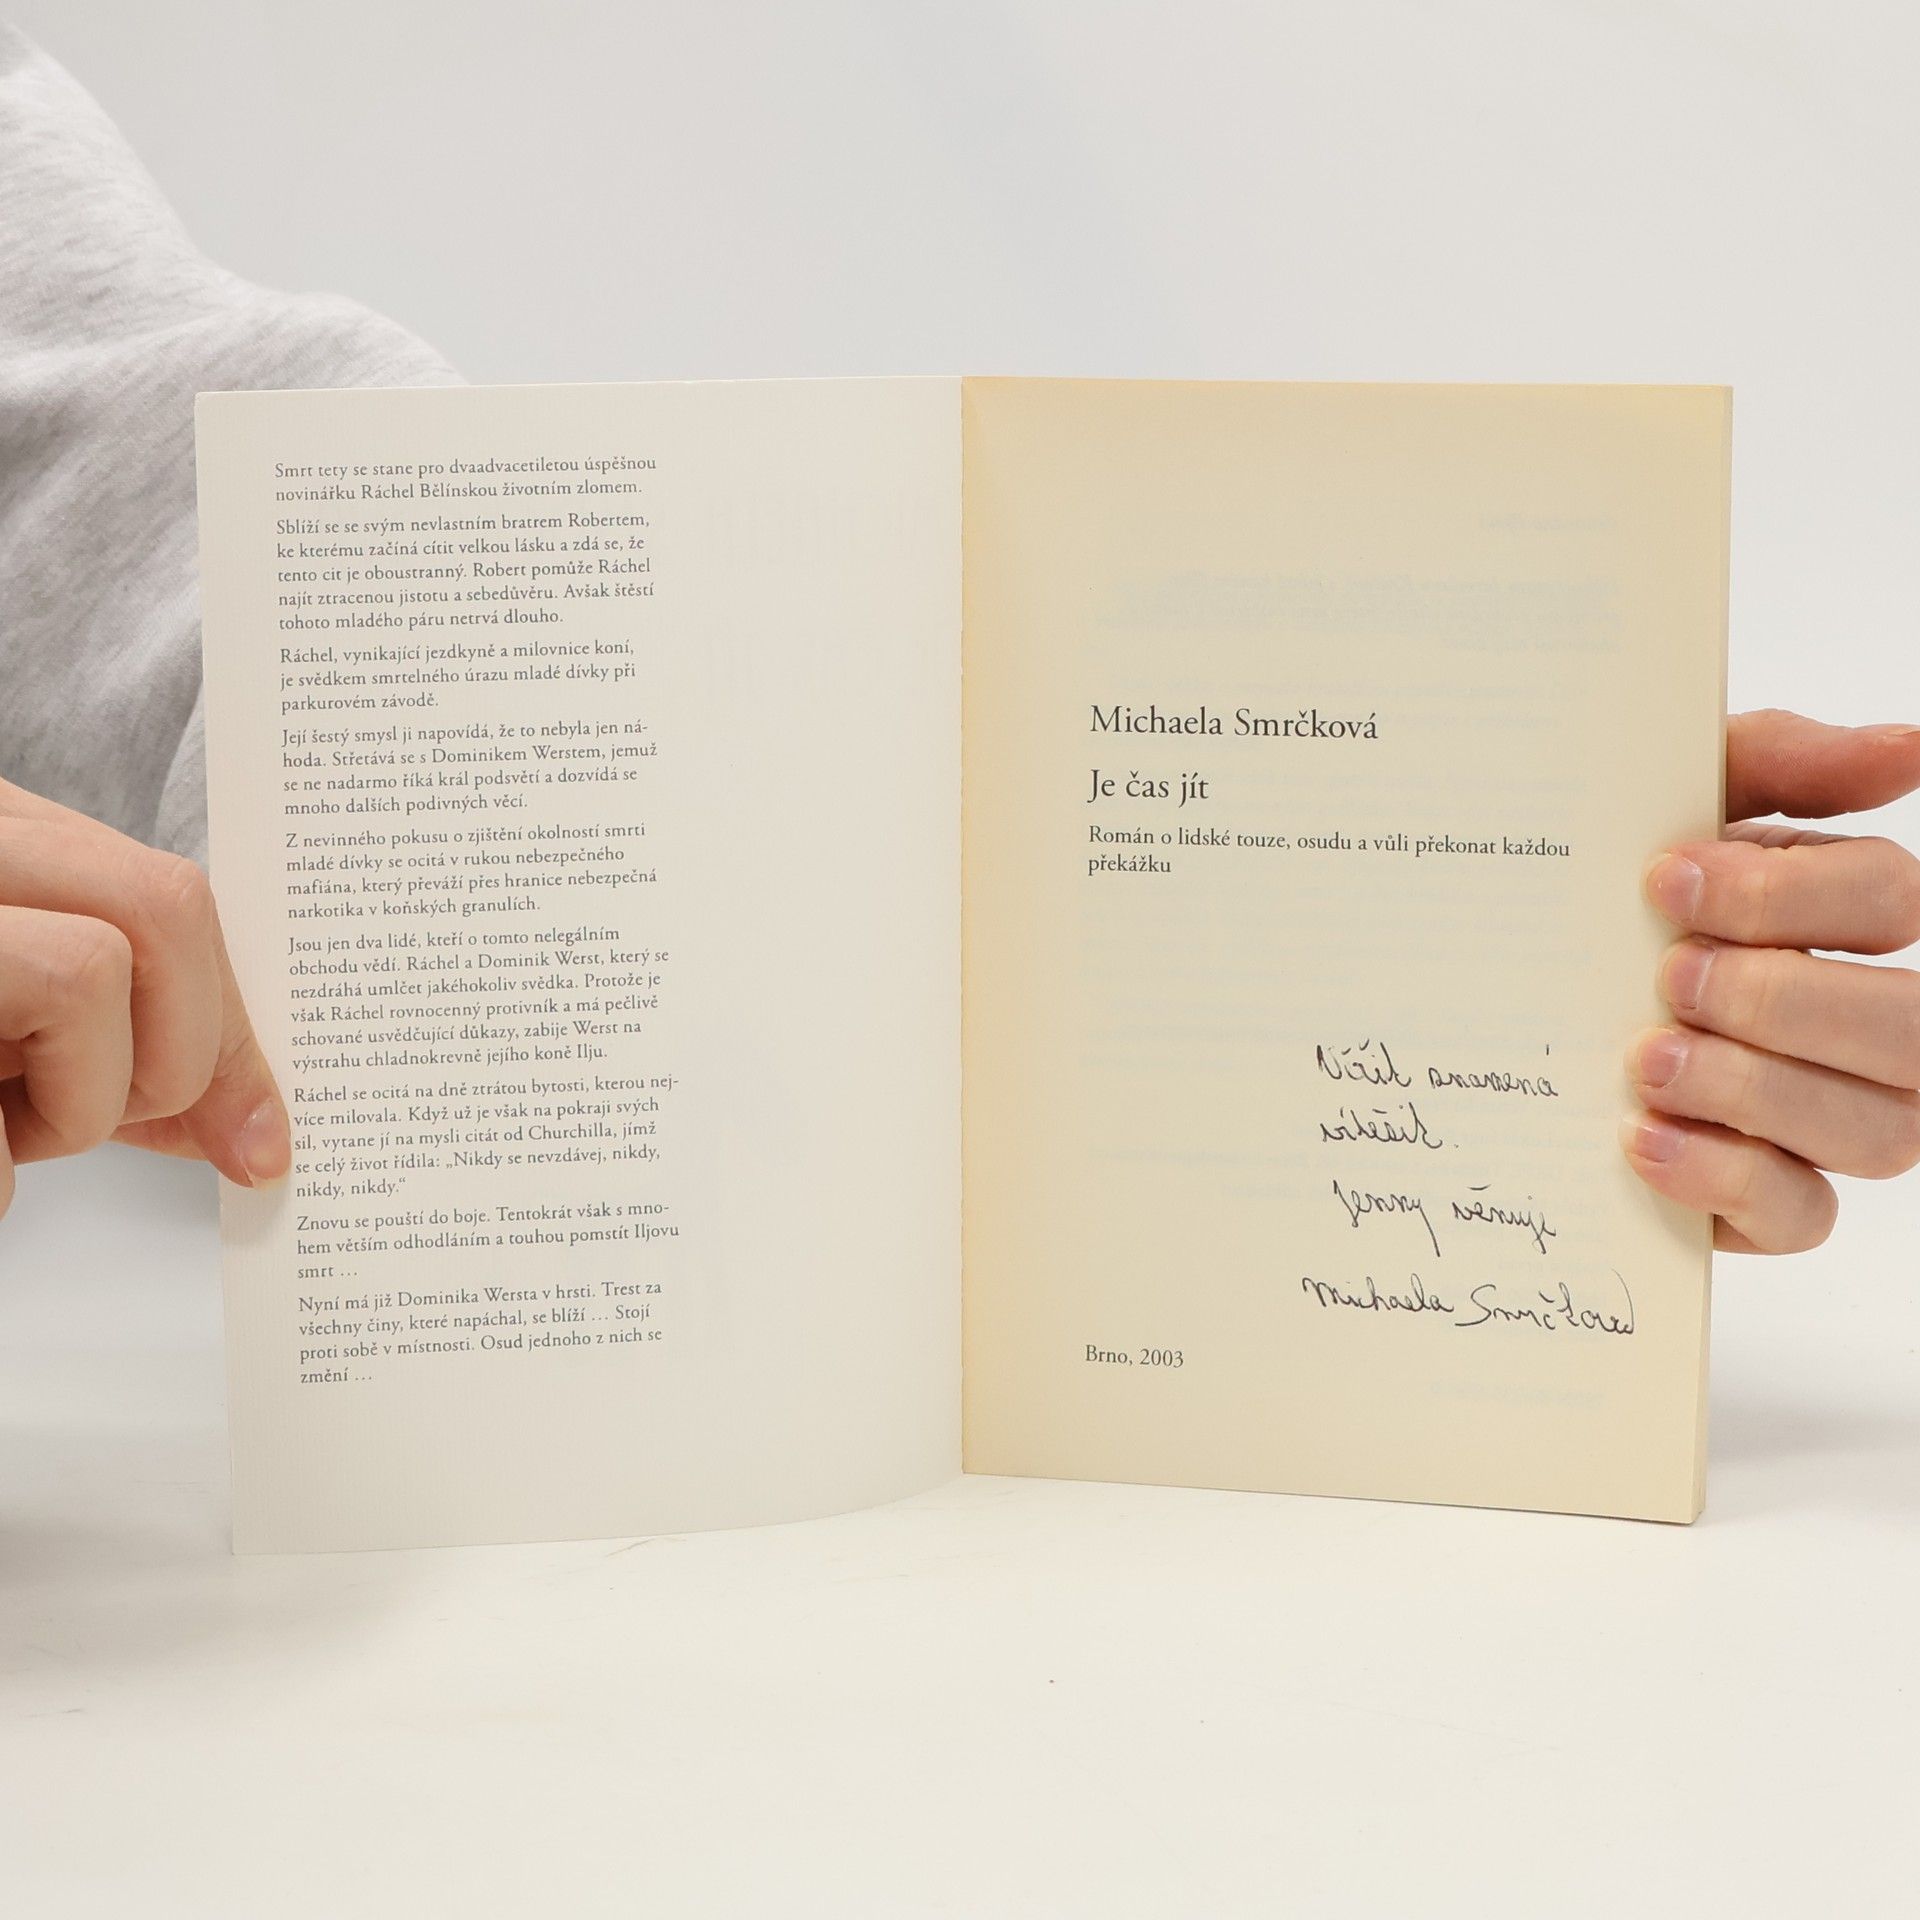 Smrt tety se stane pro dvaadvacetiletou úspěšnou
novinářku Ráchel Bělínskou životním zlomem.
Sblíží se se svým nevlastním bratrem Robertem,
ke kterému začíná cítit velkou lásku a zdá se, že
tento cit je oboustranný. Robert pomůže Ráchel
najít ztracenou jistotu a sebedůvěru. Avšak štěstí
tohoto mladého páru netrvá dlouho.
Ráchel, vynikající jezdkyně a milovnice koní,
je svědkem smrtelného úrazu mladé dívky při
parkurovém závodě.
Její šestý smysl ji napovídá, že to nebyla jen ná-
hoda. Střetává se s Dominikem Werstem, jemuž
se ne nadarmo říká král podsvětí a dozvídá se
mnoho dalších podivných věcí.
Z nevinného pokusu o zjištění okolností smrti
mladé dívky se ocitá v rukou nebezpečného
mafiána, který převáží přes hranice nebezpečná
narkotika v koňských granulích.
Jsou jen dva lidé, kteří o tomto nelegálním
obchodu vědí. Ráchel a Dominik Werst, který se
nezdráhá umlčet jakéhokoliv svědka. Protože je
však Ráchel rovnocenný protivník a má pečlivě
schované usvědčující důkazy, zabije Werst na
výstrahu chladnokrevně jejího koně Ilju.
Ráchel se ocitá na dně ztrátou bytosti, kterou nej-
více milovala. Když už je však na pokraji svých
sil, vytane jí na mysli citát od Churchilla, jímž
se celý život řídila: „Nikdy se nevzdávej, nikdy,
nikdy, nikdy.“
Znovu se pouští do boje. Tentokrát však s mno-
hem větším odhodláním a touhou pomstít Iljovu
smrt …
Nyní má již Dominika Wersta v hrsti. Trest za
všechny činy, které napáchal, se blíží … Stojí
proti sobě v místnosti. Osud jednoho z nich se
změní …
Michaela Smrčková
Je čas jít
Román o lidské touze, osudu a vůli překonat každou
překážku
znamená
vítězit.
Jenny věnuje
Michaela Smrčková
Brno, 2003